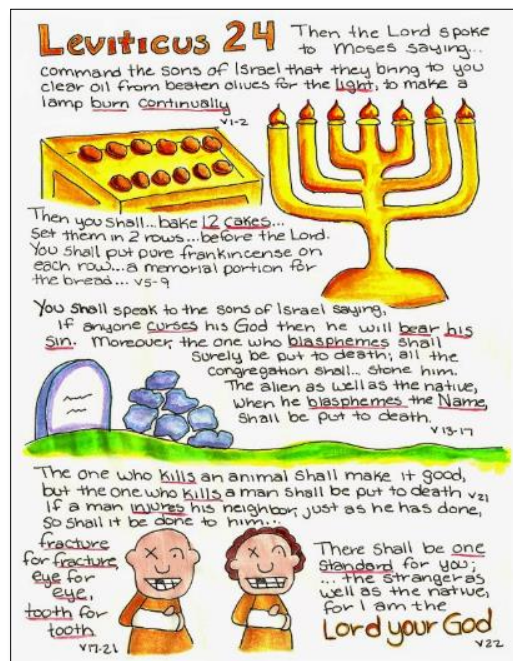 Leviticus 24
Then the Lord spoke
to Moses saying...
command the sons of Israel that they bring to you
clear oil from beaten olives for the light, to make a
lamp burn continually
v1-2
Then you shall...bake 12 cakes...
set them in 2 rows...before the Lord.
You shall put pure frankincense on
each row...a memorial portion for
the bread... v5-9
You shall speak to the sons of Israel saying,
If anyone curses his God then he will bear his
sin. Moreover, the one who blasphemes shall
surely be put to death; all the
congregation shall... stone him.
The alien as well as the native,
when he blasphemes the Name,
shall be put to death.
v13-17
The one who kills an animal shall make it good,
but the one who kills a man shall be put to death v21
If a man injures his neighbor, just as he has done,
so shall it be done to him...
fracture
for fracture,
eye for
eye,
tooth for
tooth
v17-21
There shall be one
standard for you;
... the stranger as
well as the native,
for I am the
Lord your God
v22